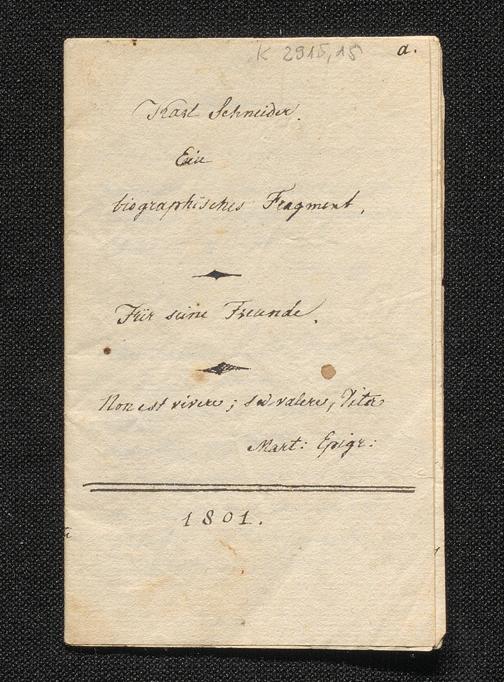 K 2915,15
a.
Karl Schneider.
Ein
biographisches Fragment.
Für seine Freunde.
Non est vivere; sed valere, Vita
Mart: Epigr:
1801.